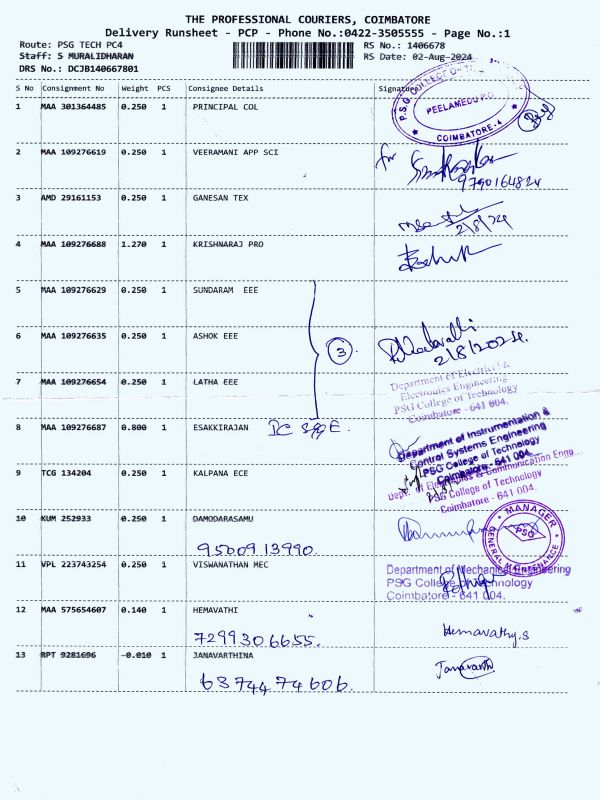 THE PROFESSIONAL COURIERS, COIMBATORE
Delivery Runsheet - PCP - Phone No.:0422-3505555 - Page No.:1
Route: PSG TECH PC4 RS No.: 1406678
Staff: S MURALIDHARAN RS Date: 02-Aug-2024
DRS No.: DCJB140667801
S No Consignment No Weight PCS Consignee Details Signature
1 MAA 301364485 0.250 1 PRINCIPAL COL
PEELAMEDU P.O.
COIMBATORE-4
2 MAA 109276619 0.250 1 VEERAMANI APP SCI for
3 AMD 29161153 0.250 1 GANESAN TEX
2/8/24
4 MAA 109276688 1.270 1 KRISHNARAJ PRO
5 MAA 109276629 0.250 1 SUNDARAM EEE
6 MAA 109276635 0.250 1 ASHOK EEE 3
2/8/2024.
7 MAA 109276654 0.250 1 LATHA EEE
Department of Electrical &
Electronics Engineering
PSG College of Technology
Coimbatore - 641 004.
8 MAA 109276687 0.800 1 ESAKKIRAJAN
Department of Instrumentation &
Control Systems Engineering
PSG College of Technology
Coimbatore - 641 004.
9 TCG 134204 0.250 1 KALPANA ECE
Dept. of Electronics & Communication Engg..
PSG College of Technology
Coimbatore - 641 004.
10 KUM 252933 0.250 1 DAMODARASAMU
95009 13990.
MANAGER
PSG
GENERAL MAINTENANCE
11 VPL 223743254 0.250 1 VISWANATHAN MEC
Department of Mechanical Engineering
PSG College of Technology
Coimbatore - 641 004.
12 MAA 575654607 0.140 1 HEMAVATHI
7299306655. Hemavathy.S
13 RPT 9281696 -0.010 1 JANAVARTHINA
6374474606.